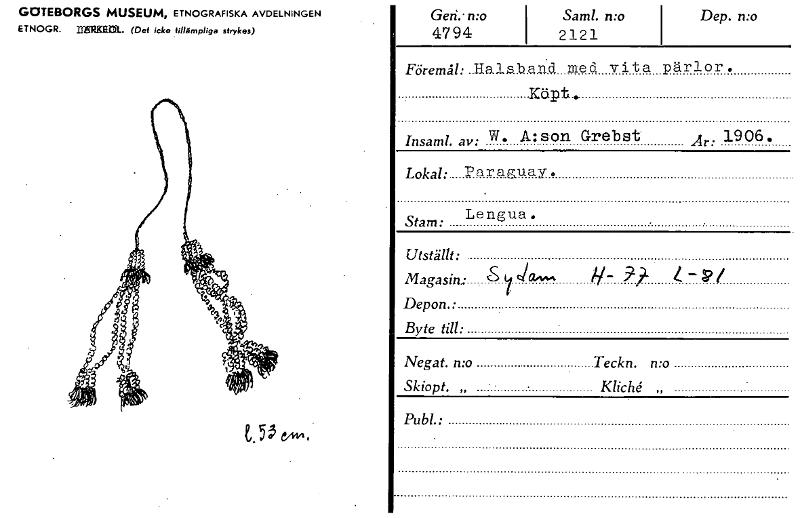 GÖTEBORGS MUSEUM, ETNOGRAFISKA AVDELNINGEN
ETNOGR. (Det icke tillämpliga strykes)
l. 53 cm.
Gen. n:o Saml. n:o Dep. n:o
4794 2121
Föremål: Halsband med vita pärlor.
Köpt.
Insaml. av: W. A:son Grebst År: 1906.
Lokal: Paraguay.
Stam: Lengua.
Utställt:
Magasin: Sydam H-77 L-81
Depon.:
Byte till:
Negat. n:o Teckn. n:o
Skiopt. „ Kliché „
Publ.: